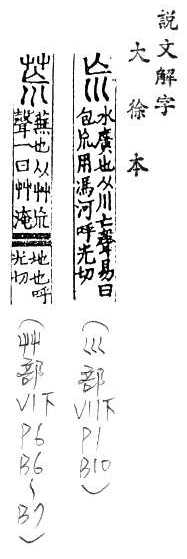 說文解字
大徐本
巟 水廣也从川亡聲易曰
包巟用馮河呼光切
(巛部 VII下 P1 B10)
𦬆 蕪也从艸巟
聲一曰艸淹
地也呼
光切
(艸部 VI下 P6 B6〜B7)